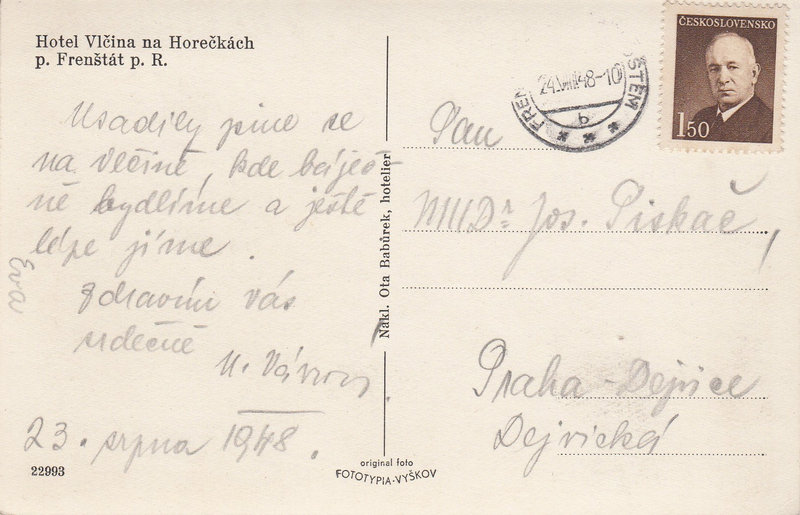 Hotel Vlčina na Horečkách
p. Frenštát p. R.
Usadily jsme se
na Vlčině, kde báječ-
ně bydlíme a ještě
lépe jíme.
Zdravím vás
srdečně
Eva
23. srpna 1948.
22993
Nákl. Ota Babůrek, hotelier
original foto
FOTOTYPIA-VYŠKOV
24.VIII.48-10
b
ČESKOSLOVENSKO
1.50
Pan
MUDr Jos. Piskač,
Praha-Dejvice
Dejvická